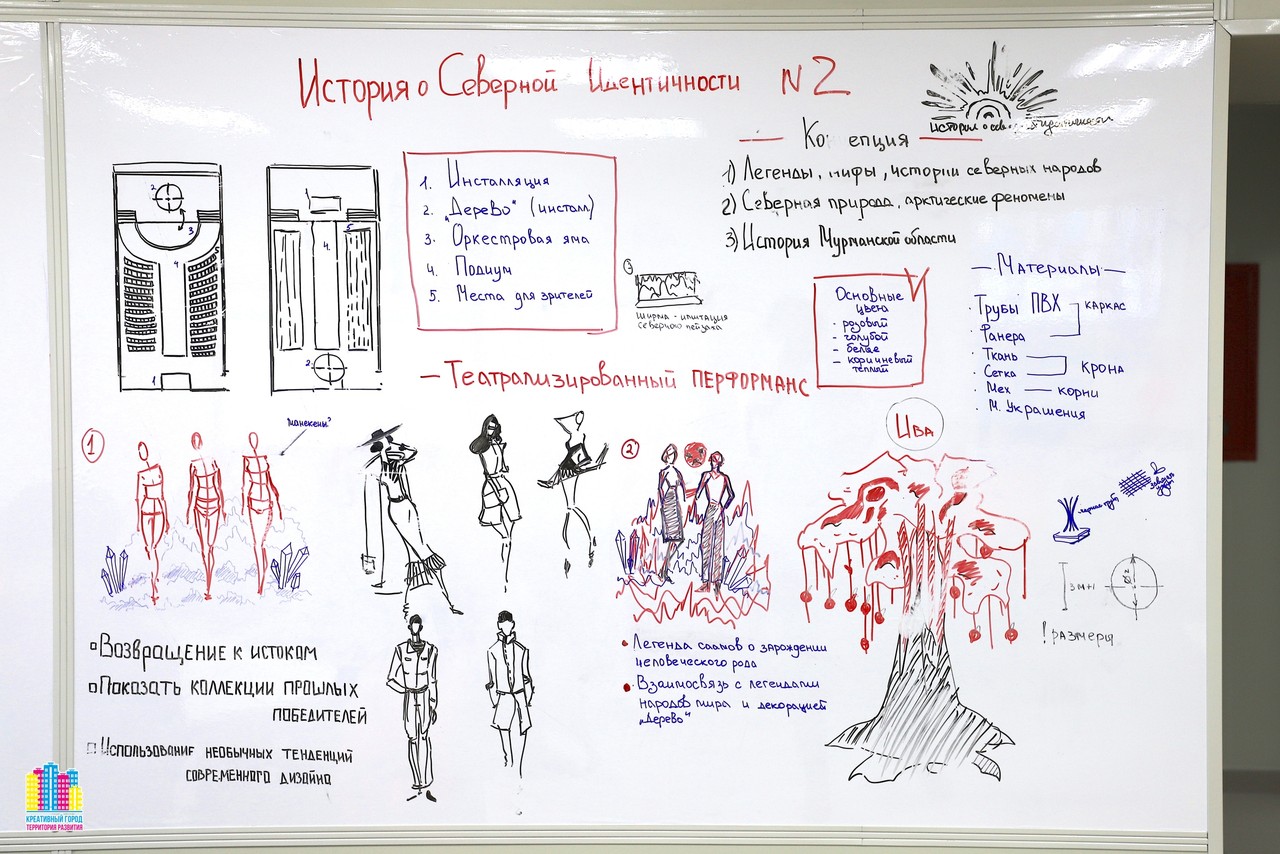 История о Северной Идентичности N2
Концепция
1) Легенды, мифы, истории северных народов
2) Северная природа, арктические феномены
3) История Мурманской области
1. Инсталляция
2. „Дерево“ (инсталл)
3. Оркестровая яма
4. Подиум
5. Места для зрителей
2
3
4
1
1
4
5
2
1
ширма - имитация
северного пейзажа
Основные
цвета
- розовый
- голубой
- белые
- коричневый
тёплый
— Материалы —
· Трубы ПВХ
каркас
· Фанера
· Ткань
· Сетка
крона
· Мех — корни
· М. Украшения
— Театрализированный ПЕРФОРМАНС
1
"манекены?
2
ИВА
3м+1
! размеры
Возвращение к истокам
Показать коллекции прошлых
победителей
Использование необычных тенденций
современного дизайна
• Легенда саамов о зарождении
человеческого рода
• Взаимосвязь с легендами
народов мира и декорацией
„Дерево“
КРЕАТИВНЫЙ ГОРОД
ТЕРРИТОРИЯ РАЗВИТИЯ